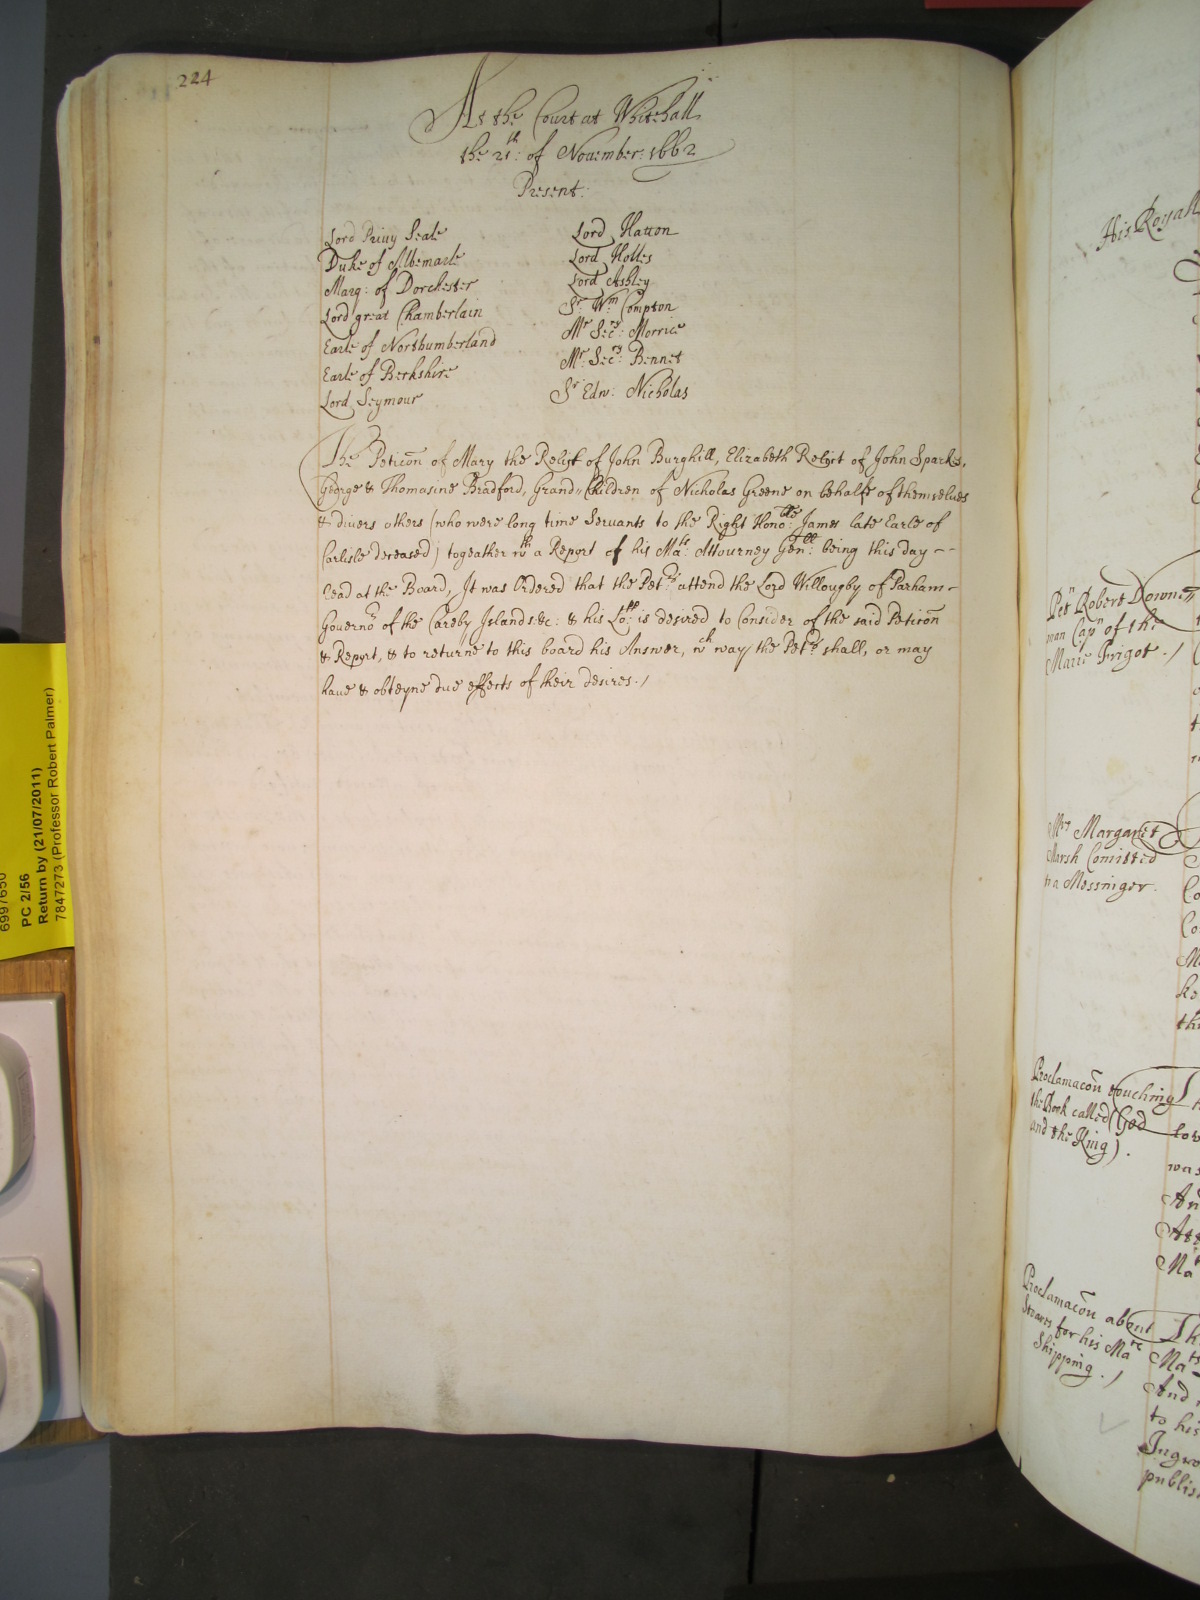 224
At the Court at Whitehall
the 21th: of November: 1662
Present:
Lord Privy Seale
Duke of Albemarle
Marq: of Dorchester
Lord great Chamberlain
Earle of Northumberland
Earle of Berkshire
Lord Seymour
Lord Hatton
Lord Holles
Lord Ashley
Sr Wm Compton
Mr Secry: Morrice
Mr: Secry: Bennet
Sr Edw: Nicholas
The Peticōn of Mary the Relict of John Burghill, Elizabeth Relict of John Sparks,
George & Thomasine Bradford, Grand-Children of Nicholas Greene on behalfe of themselves
& divers others (who were long time Servants to the Right Honoble: James late Earle of
Carlisle deceased) togeather wth a Report of his Mats: Attourney Genll: being this day --
read at the Board, It was Ordered that the Petrs attend the Lord Willougby of Parham-
Governor of the Careby Islands &c: & his Lopp: is desired to Consider of the said Peticōn
& Report, & to returne to this board his Answer, wch way the Petrs shall, or may
have & obteyne due effects of their desires./
His Royall
Petn Robert Downe
man Capn of the
Marie Frigot./
Mrs Margaret
Marsh Comitted
to a Messinger.
Proclamacōn touching
the Book called (God
and the King).
Proclamacōn about
for his Matie
Shipping./
PC 2/56
Return by (21/07/2011)
7847273 (Professor Robert Palmer)